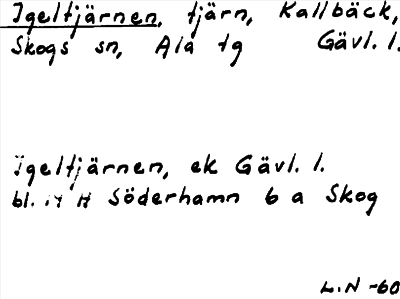 Igeltjärnen, tjärn, Kallbäck,
Skogs sn, Ala tg Gävl. l.
Igeltjärnen, ek Gävl. l.
bl. 14 H Söderhamn 6 a Skog
L.N -60